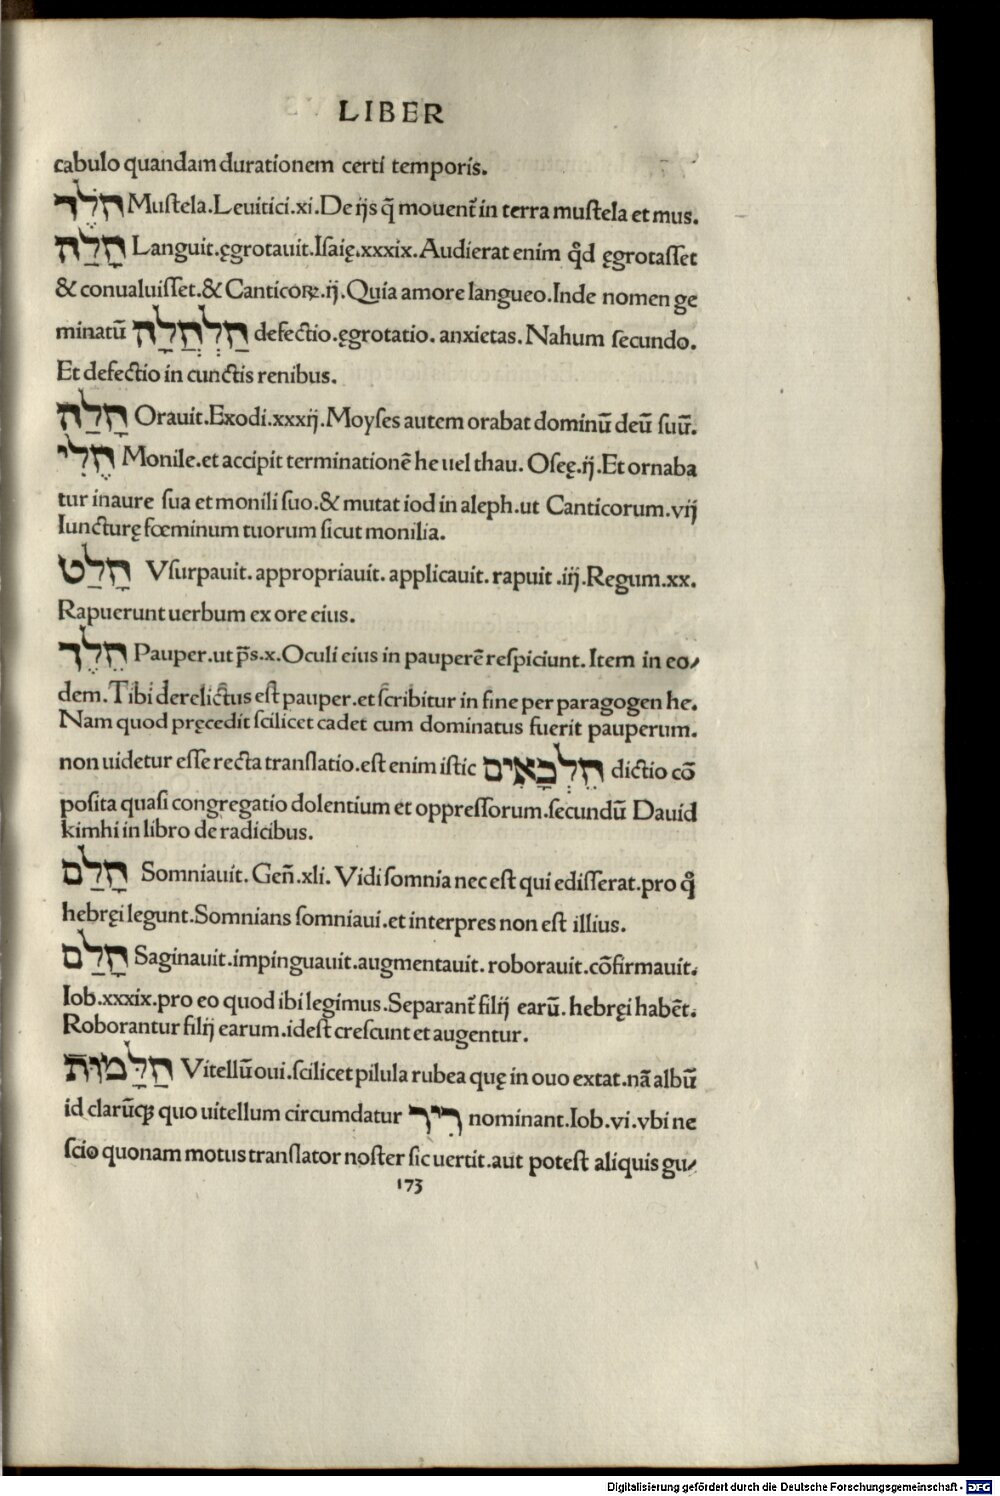 LIBER
cabulo quandam durationem certi temporis.
חֹלֶד Muſtela.Leuitici.xi.De ijs q̃ mouent̃ in terra muſtela et mus.
חָלַה Languit.ęgrotauit.Iſaię.xxxix.Audierat enim qd̉ ęgrotaſſet
& conualuiſſet.& Canticoꝝ.ij.Quia amore langueo.Inde nomen ge
minatū חַלְחֲלָה defectio.ęgrotatio. anxietas. Nahum ſecundo.
Et defectio in cunctis renibus.
חָלַה Orauit.Exodi.xxxij.Moyſes autem orabat dominū deū ſuū.
חֲלִי Monile.et accipit terminationē he uel thau. Oſeę.ij.Et ornaba
tur inaure ſua et monili ſuo.& mutat iod in aleph.ut Canticorum.vij
Iuncturę fœminum tuorum ſicut monilia.
חָלַט Vſurpauit. appropriauit. applicauit. rapuit .iij.Regum.xx.
Rapuerunt uerbum ex ore eius.
חֵלֶך Pauper.ut p̄s.x.Oculi eius in pauperē reſpiciunt. Item in eo⸗
dem.Tibi derelictus eſt pauper.et ſcribitur in fine per paragogen he.
Nam quod pręcedit ſcilicet cadet cum dominatus fuerit pauperum.
non uidetur eſſe recta tranſlatio.eſt enim iſtic חֵלְכָאִים dictio cō
poſita quaſi congregatio dolentium et oppreſſorum.ſecundū Dauid
kimhi in libro de radicibus.
חָלַם Somniauit. Geñ.xli. Vidi ſomnia nec eſt qui ediſſerat.pro q̉
hebręi legunt.Somnians ſomniaui.et interpres non eſt illius.
חָלַם Saginauit.impinguauit.augmentauit. roborauit.cōfirmauit.
Iob.xxxix.pro eo quod ibi legimus.Separant̃ filij earū. hebręi habēt.
Roborantur filij earum.ideſt creſcunt et augentur.
חַלָּמוּת Vitellū oui.ſcilicet pilula rubea quę in ouo extat.nā albū
id clarūqꝫ quo uitellum circumdatur רִיר nominant.Iob.vi.vbi ne
ſcio quonam motus tranſlator noſter ſic uertit.aut poteſt aliquis gu⸗
173
Digitalisierung gefördert durch die Deutsche Forschungsgemeinschaft - DFG